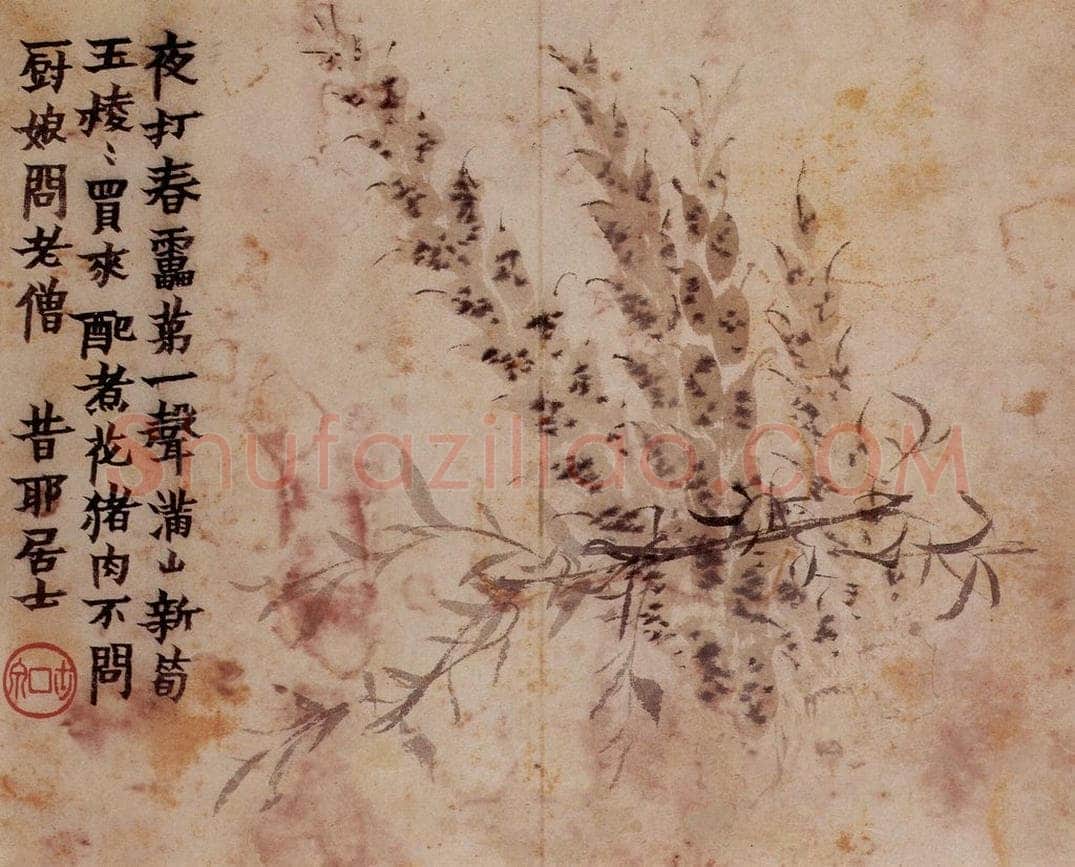 夜打春靁苐一聲滿山新筍
玉棱〻買來配煮花猪肉不問
厨娘問老僧 昔耶居士
Shufaziliao.COM